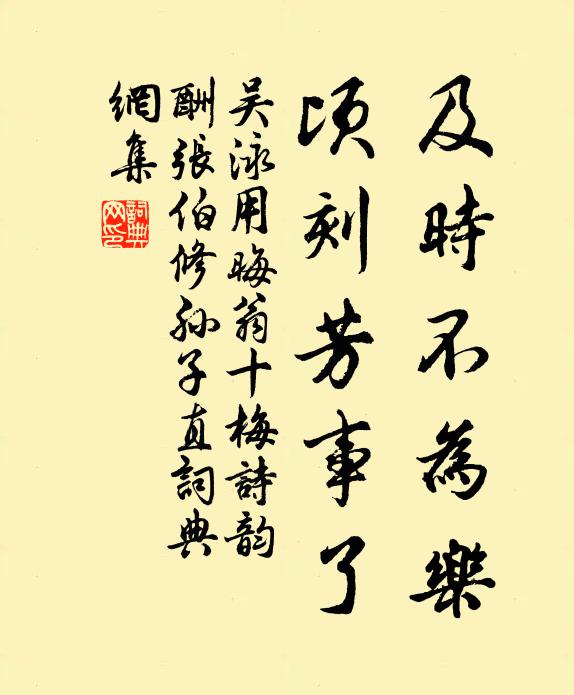 及時不為樂
頃刻芳事了
吳泳用晦翁十梅詩韵
酬張伯修孙子直詞典
網集
詞典
网印